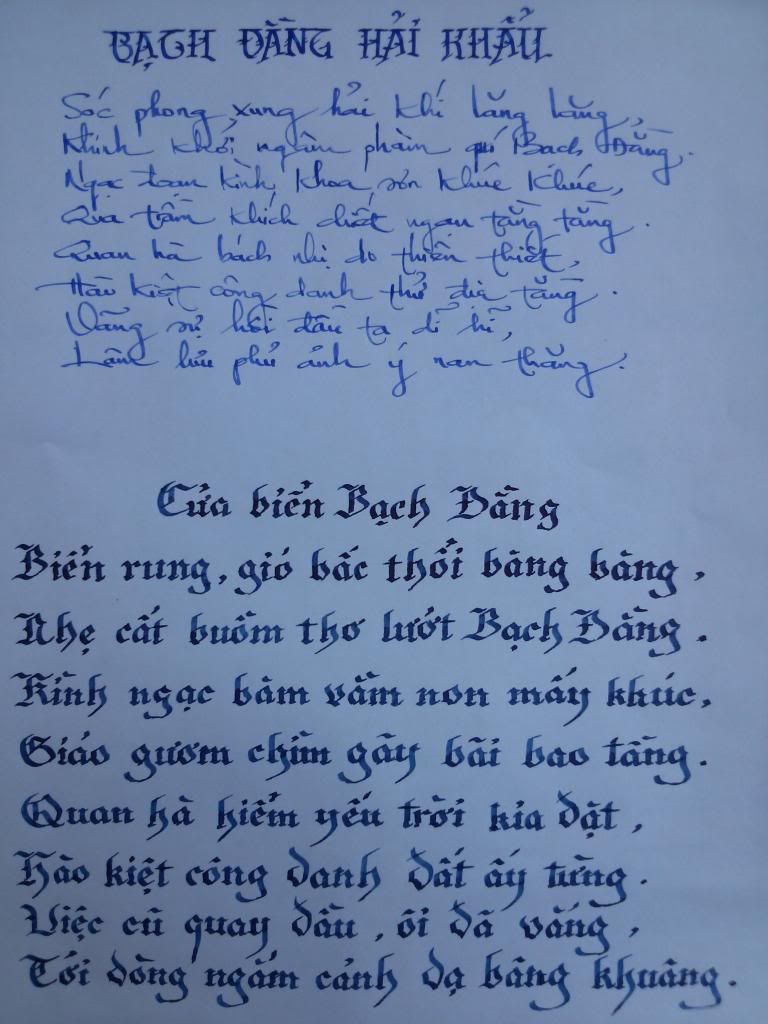 BẠCH ĐẰNG HẢI KHẨU
Sóc phong xung hải khí lăng lăng,
Khinh khởi ngâm phàm quá Bạch Đằng.
Ngạc đoạn kình khoa sơn khúc khúc,
Qua trầm kích chiết ngạn tằng tằng.
Quan hà bách nhị do thiên thiết,
Hào kiệt công danh thử địa tằng.
Vãng sự hồi đầu ta dĩ hĩ,
Lâm lưu phủ ảnh ý nan thăng.
Cửa biển Bạch Đằng
Biển rung, gió bấc thổi băng băng,
Nhẹ cất buồm thơ lướt Bạch Đằng.
Kình ngạc băm vằm non mấy khúc,
Giáo gươm chìm gãy bãi bao tầng.
Quan hà hiểm yếu trời kia đặt,
Hào kiệt công danh đất ấy từng.
Việc cũ quay đầu, ôi đã vắng,
Tới dòng ngắm cảnh dạ bâng khuâng.